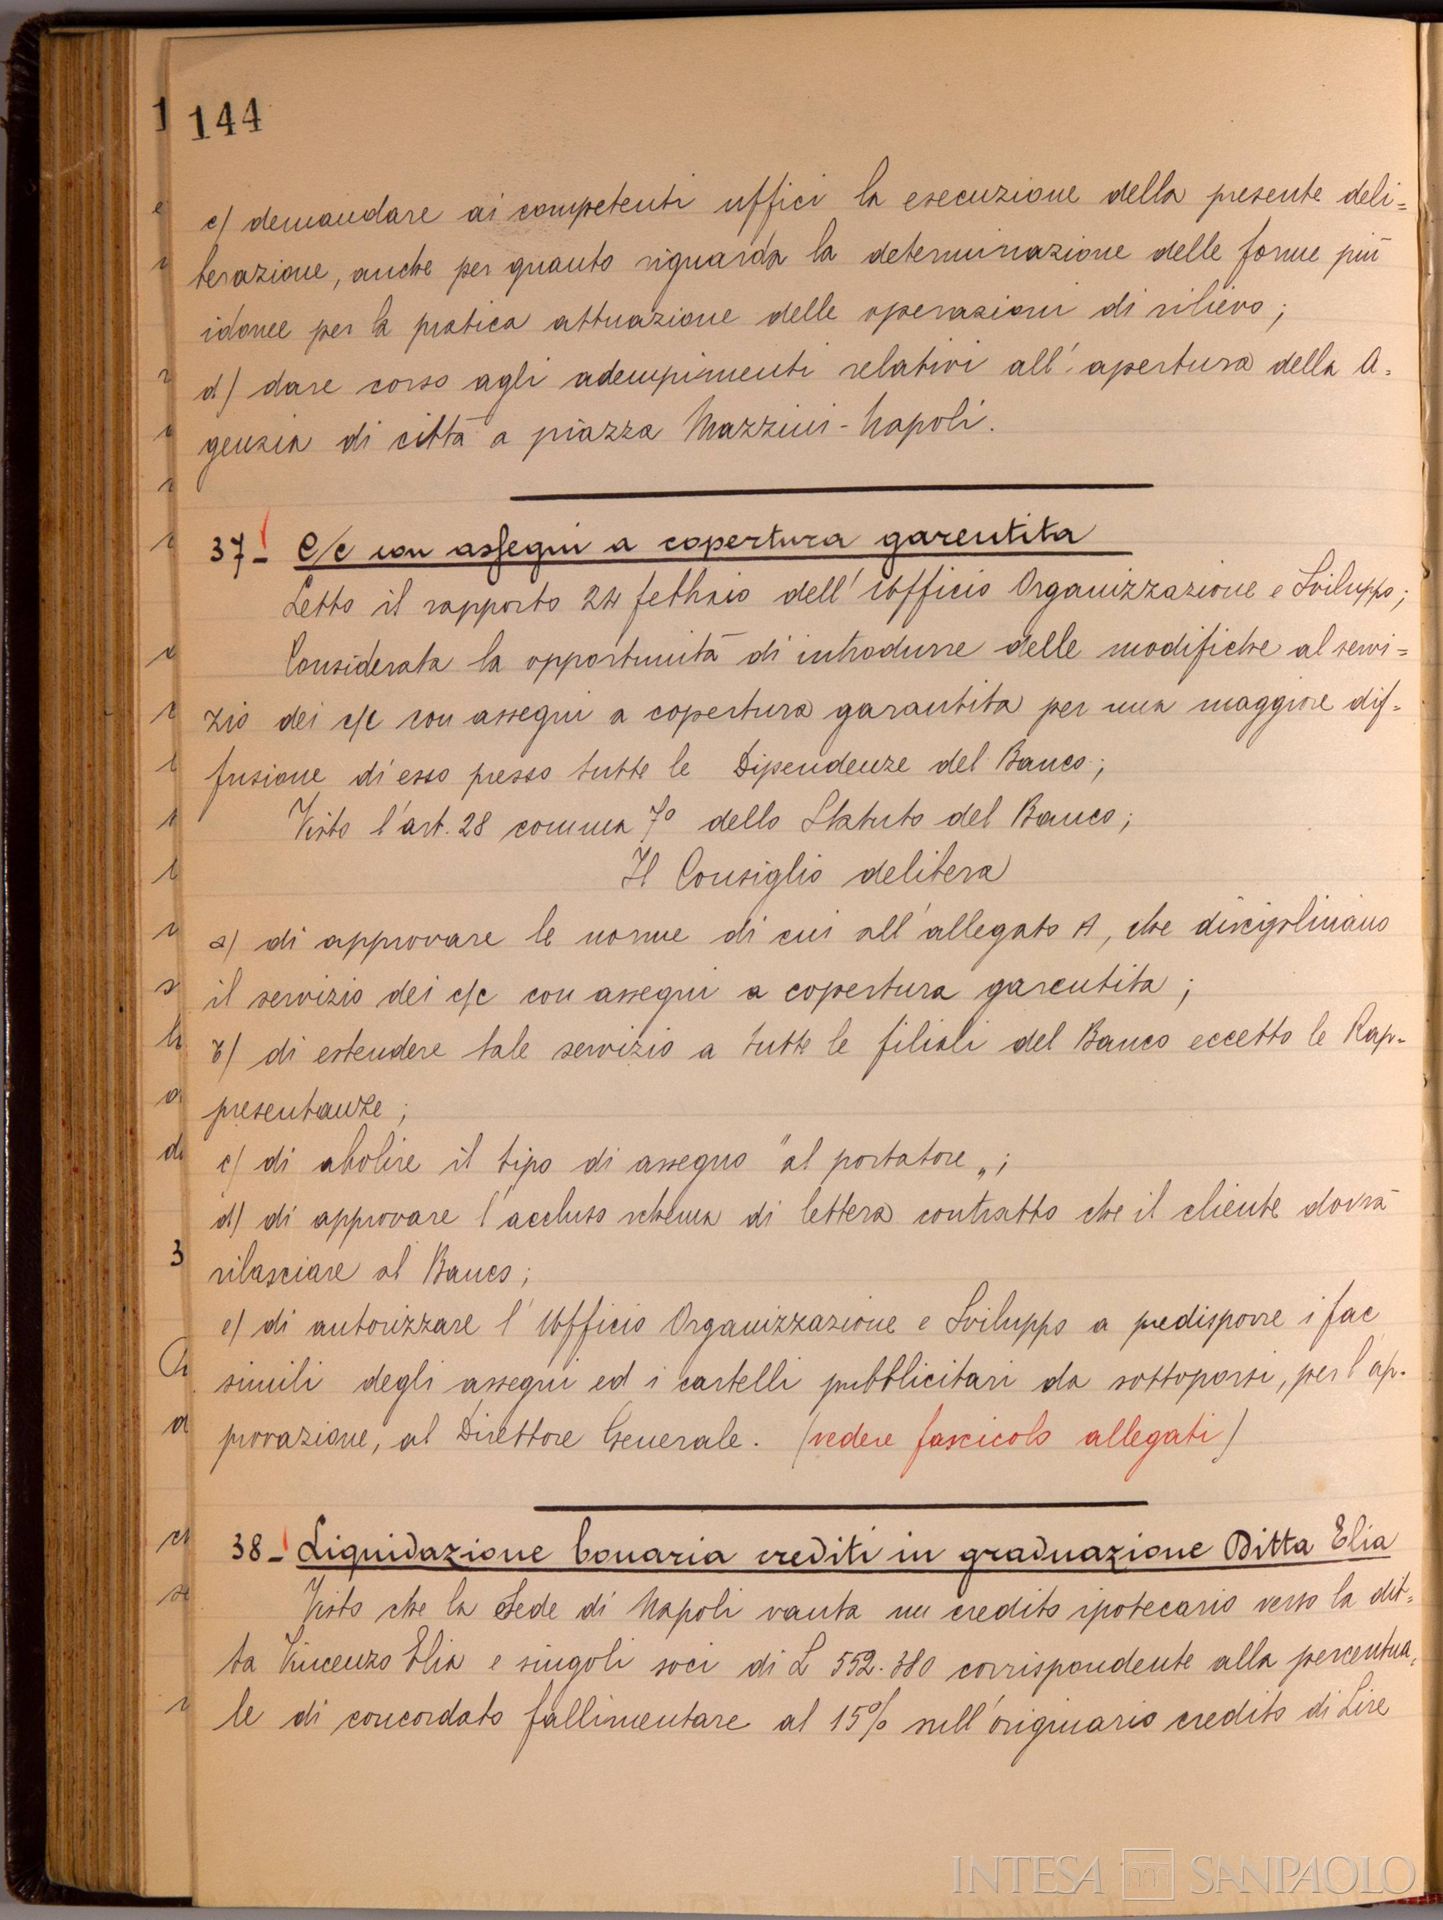 144
c) demandare ai competenti uffici la esecuzione della presente deli=
berazione, anche per quanto riguarda la determinazione delle forme più
idonee per la pratica attuazione delle operazioni di rilievo;
d) dare corso agli adempimenti relativi all'apertura della A=
genzia di città a piazza Mazzini - Napoli.
37- C/c con assegni a copertura garentita
Letto il rapporto 24 febbraio dell'Ufficio Organizzazione e Sviluppo;
Considerata la opportunità di introdurre delle modifiche al servi=
zio dei c/c con assegni a copertura garantita per una maggiore dif=
fusione di esso presso tutte le Dipendenze del Banco;
Visto l'art. 28 comma 7º dello Statuto del Banco;
Il Consiglio delibera
a) di approvare le norme di cui all'allegato A, che disciplinano
il servizio dei c/c con assegni a copertura garentita;
b) di estendere tale servizio a tutte le filiali del Banco eccetto le Rap=
presentanze;
c) di abolire il tipo di assegno "al portatore„;
d) di approvare l'accluso schema di lettera contratto che il cliente dovrà
rilasciare al Banco;
e) di autorizzare l'Ufficio Organizzazione e Sviluppo a predisporre i fac
simili degli assegni ed i cartelli pubblicitari da sottoporsi, per l'ap=
provazione, al Direttore Generale. (vedere fascicolo allegati)
38- Liquidazione bonaria crediti in graduazione Ditta Elia
Visto che la Sede di Napoli vanta un credito ipotecario verso la dit=
ta Vincenzo Elia e singoli soci di L 552.380 corrispondente alla percentua=
le di concordato fallimentare al 15% sull'originario credito di Lire
INTESA SANPAOLO